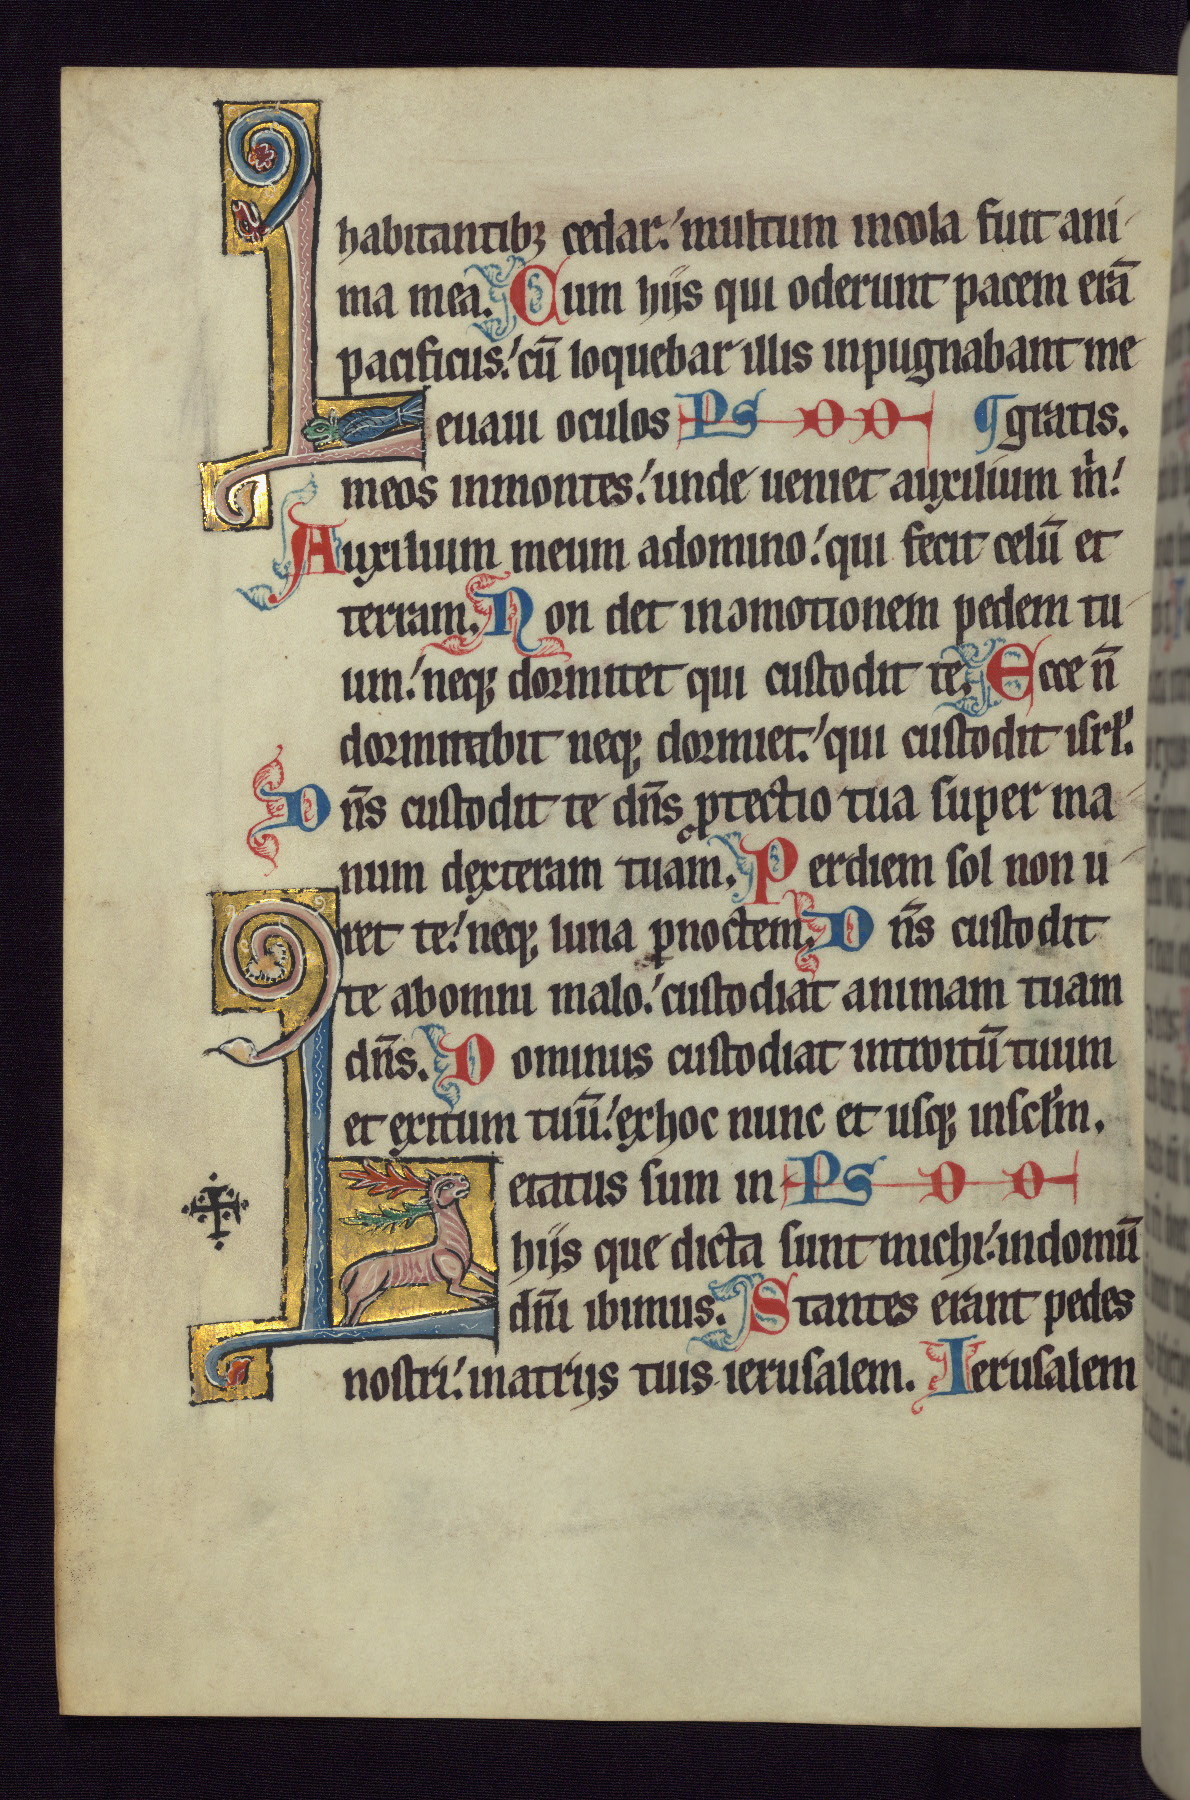 habitantibꝫ cedar. multum incola fuit ani-
ma mea. Cum hijs qui oderunt pacem erā
pacificus. cū loquebar illis inpugnabant me
Leuaui oculos PS ¶ gratis.
meos inmontes. unde ueniet auxilium m̄.
Auxilium meum adomino. qui fecit celū et
terram. Non det incomotionem pedem tu-
um. neqꝫ dormitet qui custodit te. Ecce n̄
dormitabit neqꝫ dormiet. qui custodit isrl̄.
Dn̄s custodit te dn̄s ꝓtectio tua super ma-
num dexteram tuam. Perdiem sol non u-
ret te. neqꝫ luna ꝑnoctem. Dn̄s custodit
te abomni malo. custodiat animam tuam
dn̄s. Dominus custodiat introitū tuum
et exitum tuū. exhoc nunc et usqꝫ insclm̄.
Letatus sum in PS
hijs que dicta sunt michi. indomū
dn̄i ibimus. Stantes erant pedes
nostri. inatrijs tuis ierusalem. Ierusalem